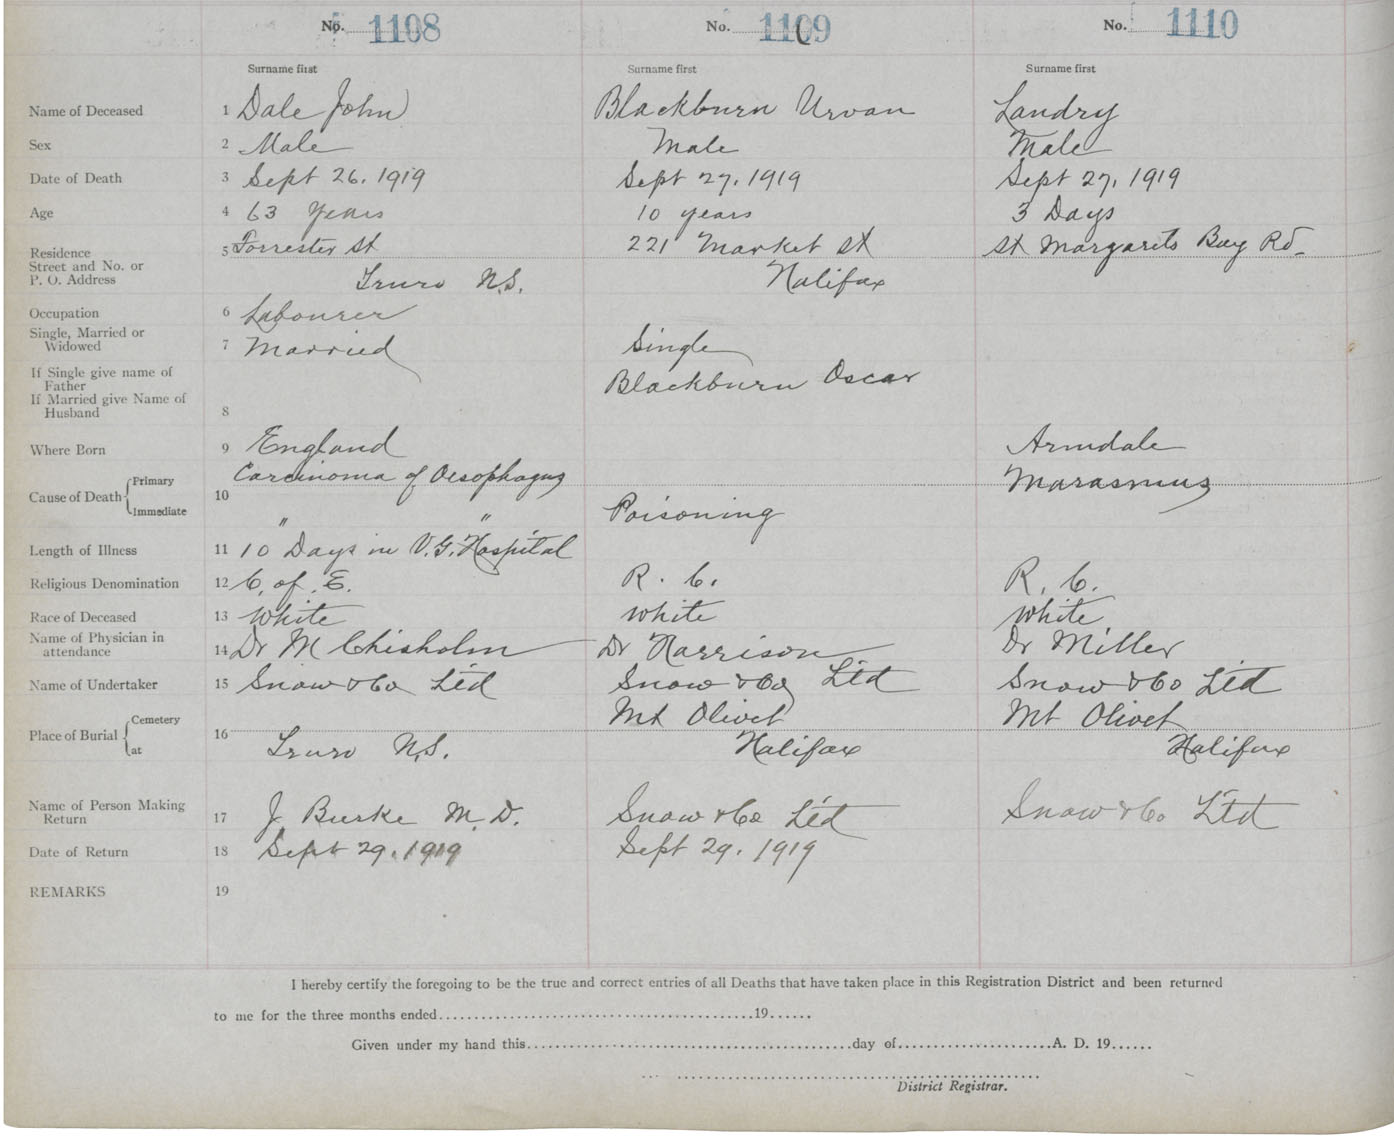 No. 1108 No. 1109 No. 1110
Surname first Surname first Surname first
Name of Deceased 1 Dale John Blackburn Urvan Landry
Sex 2 Male Male Male
Date of Death 3 Sept 26. 1919 Sept 27. 1919 Sept 27, 1919
Age 4 63 Years 10 years 3 Days
Residence 5 Forrester St 221 Market St St Margarets Bay Rd
Street and No. or
P. O. Address Truro N.S. Halifax
Occupation 6 Labourer
Single, Married or
Widowed 7 Married Single
If Single give name of
Father Blackburn Oscar
If Married give Name of
Husband 8
Where Born 9 England Armdale
Cause of Death Primary Carcinoma of Oesophagus Marasmus
10
Immediate " " Poisoning
Length of Illness 11 10 Days in V.G. Hospital
Religious Denomination 12 C. of E. R. C. R. C.
Race of Deceased 13 White White White
Name of Physician in
attendance 14 Dr M Chisholm Dr Harrison Dr Miller
Name of Undertaker 15 Snow & Co Ltd Snow & Co Ltd Snow & Co Ltd
Place of Burial Cemetery Mt Olivet Mt Olivet
16
at Truro N.S. Halifax Halifax
Name of Person Making
Return 17 J Burke M.D. Snow & Co Ltd Snow & Co Ltd
Date of Return 18 Sept 29. 1919 Sept 29. 1919
REMARKS 19
I hereby certify the foregoing to be the true and correct entries of all Deaths that have taken place in this Registration District and been returned
to me for the three months ended........................................19......
Given under my hand this..........................................day of....................A. D. 19......
District Registrar.